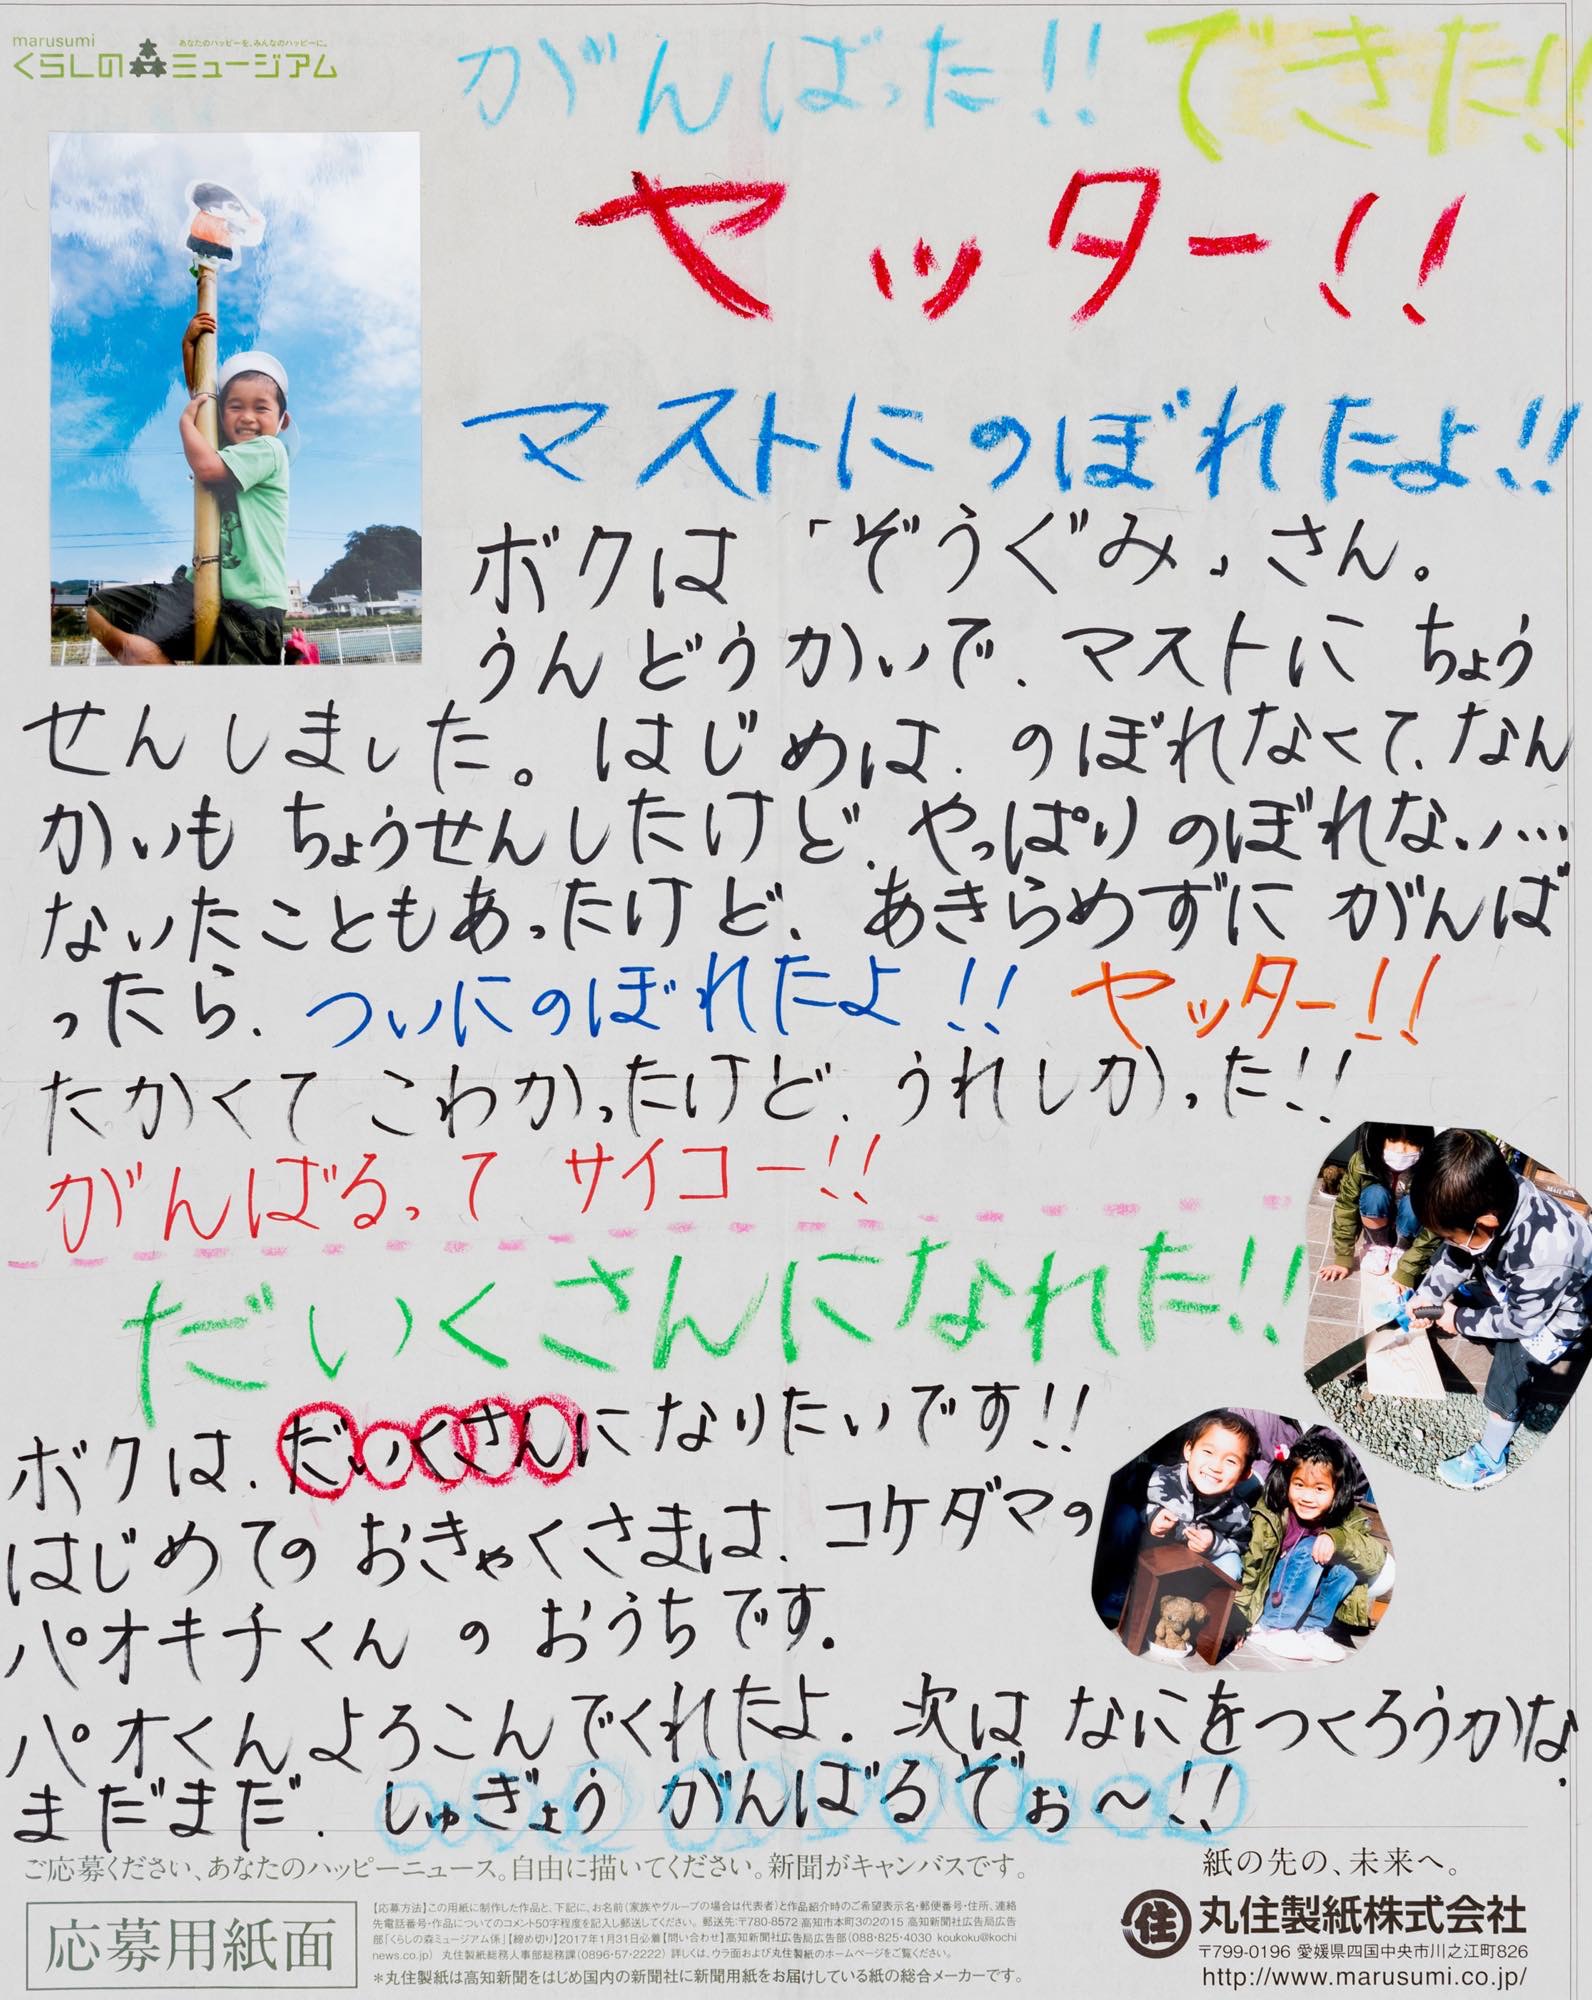 marusumi
あなたのハッピーを、みんなのハッピーに。
くらしの森ミュージアム
がんばった!! できた!!
ヤッター!!
マストにのぼれたよ!!
ボクは「ぞうぐみ」さん。
うんどうかいで、マストに ちょう
せんしました。はじめは、のぼれなくて、なん
かいも ちょうせんしたけど、やっぱり のぼれない…
ないたこともあったけど、あきらめずに がんば
ったら、ついにのぼれたよ!! ヤッター!!
たかくて こわかったけど、うれしかった!!
がんばるって サイコー!!
だいくさんになれた!!
ボクは、だいくさんになりたいです!!
はじめての おきゃくさまは、コケダマの
パオキチくん の おうちです。
パオくん よろこんでくれたよ。次は なにをつくろうかな、
まだまだ、しゅぎょう がんばるぞぉ〜!!
ご応募ください、あなたのハッピーニュース。自由に描いてください。新聞がキャンバスです。
応募用紙面
【応募方法】この用紙に制作した作品と、下記に、お名前(家族やグループの場合は代表者)と作品紹介時のご希望表示名・郵便番号・住所、連絡
先電話番号・作品についてのコメント50字程度を記入し郵送してください。郵送先:〒780-8572 高知市本町3の2の15 高知新聞社広告局広告
部「くらしの森ミュージアム係」【締め切り】2017年1月31日必着【問い合わせ】高知新聞社広告局広告部(088・825・4030 koukoku@kochi
news.co.jp) 丸住製紙総務人事部総務課(0896・57・2222) 詳しくは、ウラ面および丸住製紙のホームページをご覧ください。
*丸住製紙は高知新聞をはじめ国内の新聞社に新聞用紙をお届けしている紙の総合メーカーです。
紙の先の、未来へ。
住 丸住製紙株式会社
〒799-0196 愛媛県四国中央市川之江町826
http://www.marusumi.co.jp/